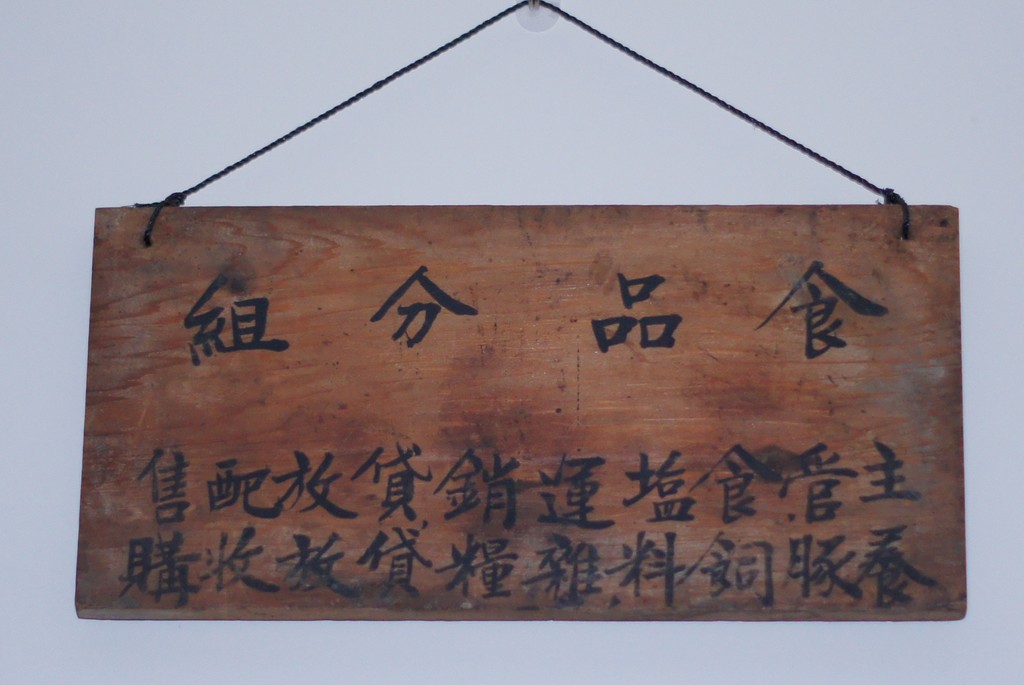 食品分組
主管食塩運銷貸放配售
養豚飼料雜糧貸放收購